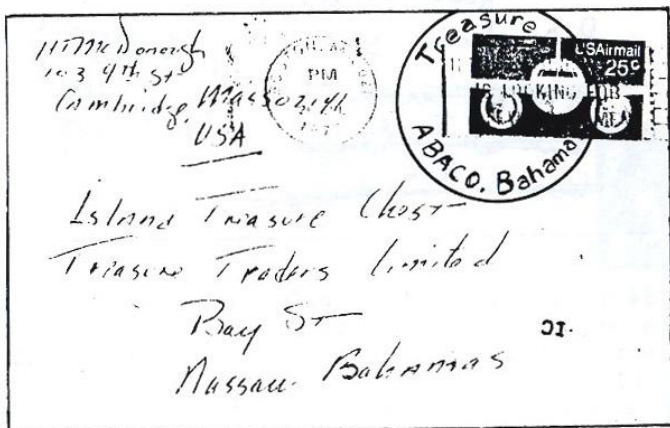 H McDonough
103 9th St
Cambridge, Mass
USA
PM
Treasure
ABACO. Bahama
USAirmail
25c
LOOKING FOR
Island Treasure Chest
Treasure Traders Limited
Bay St
Nassau. Bahamas
IC